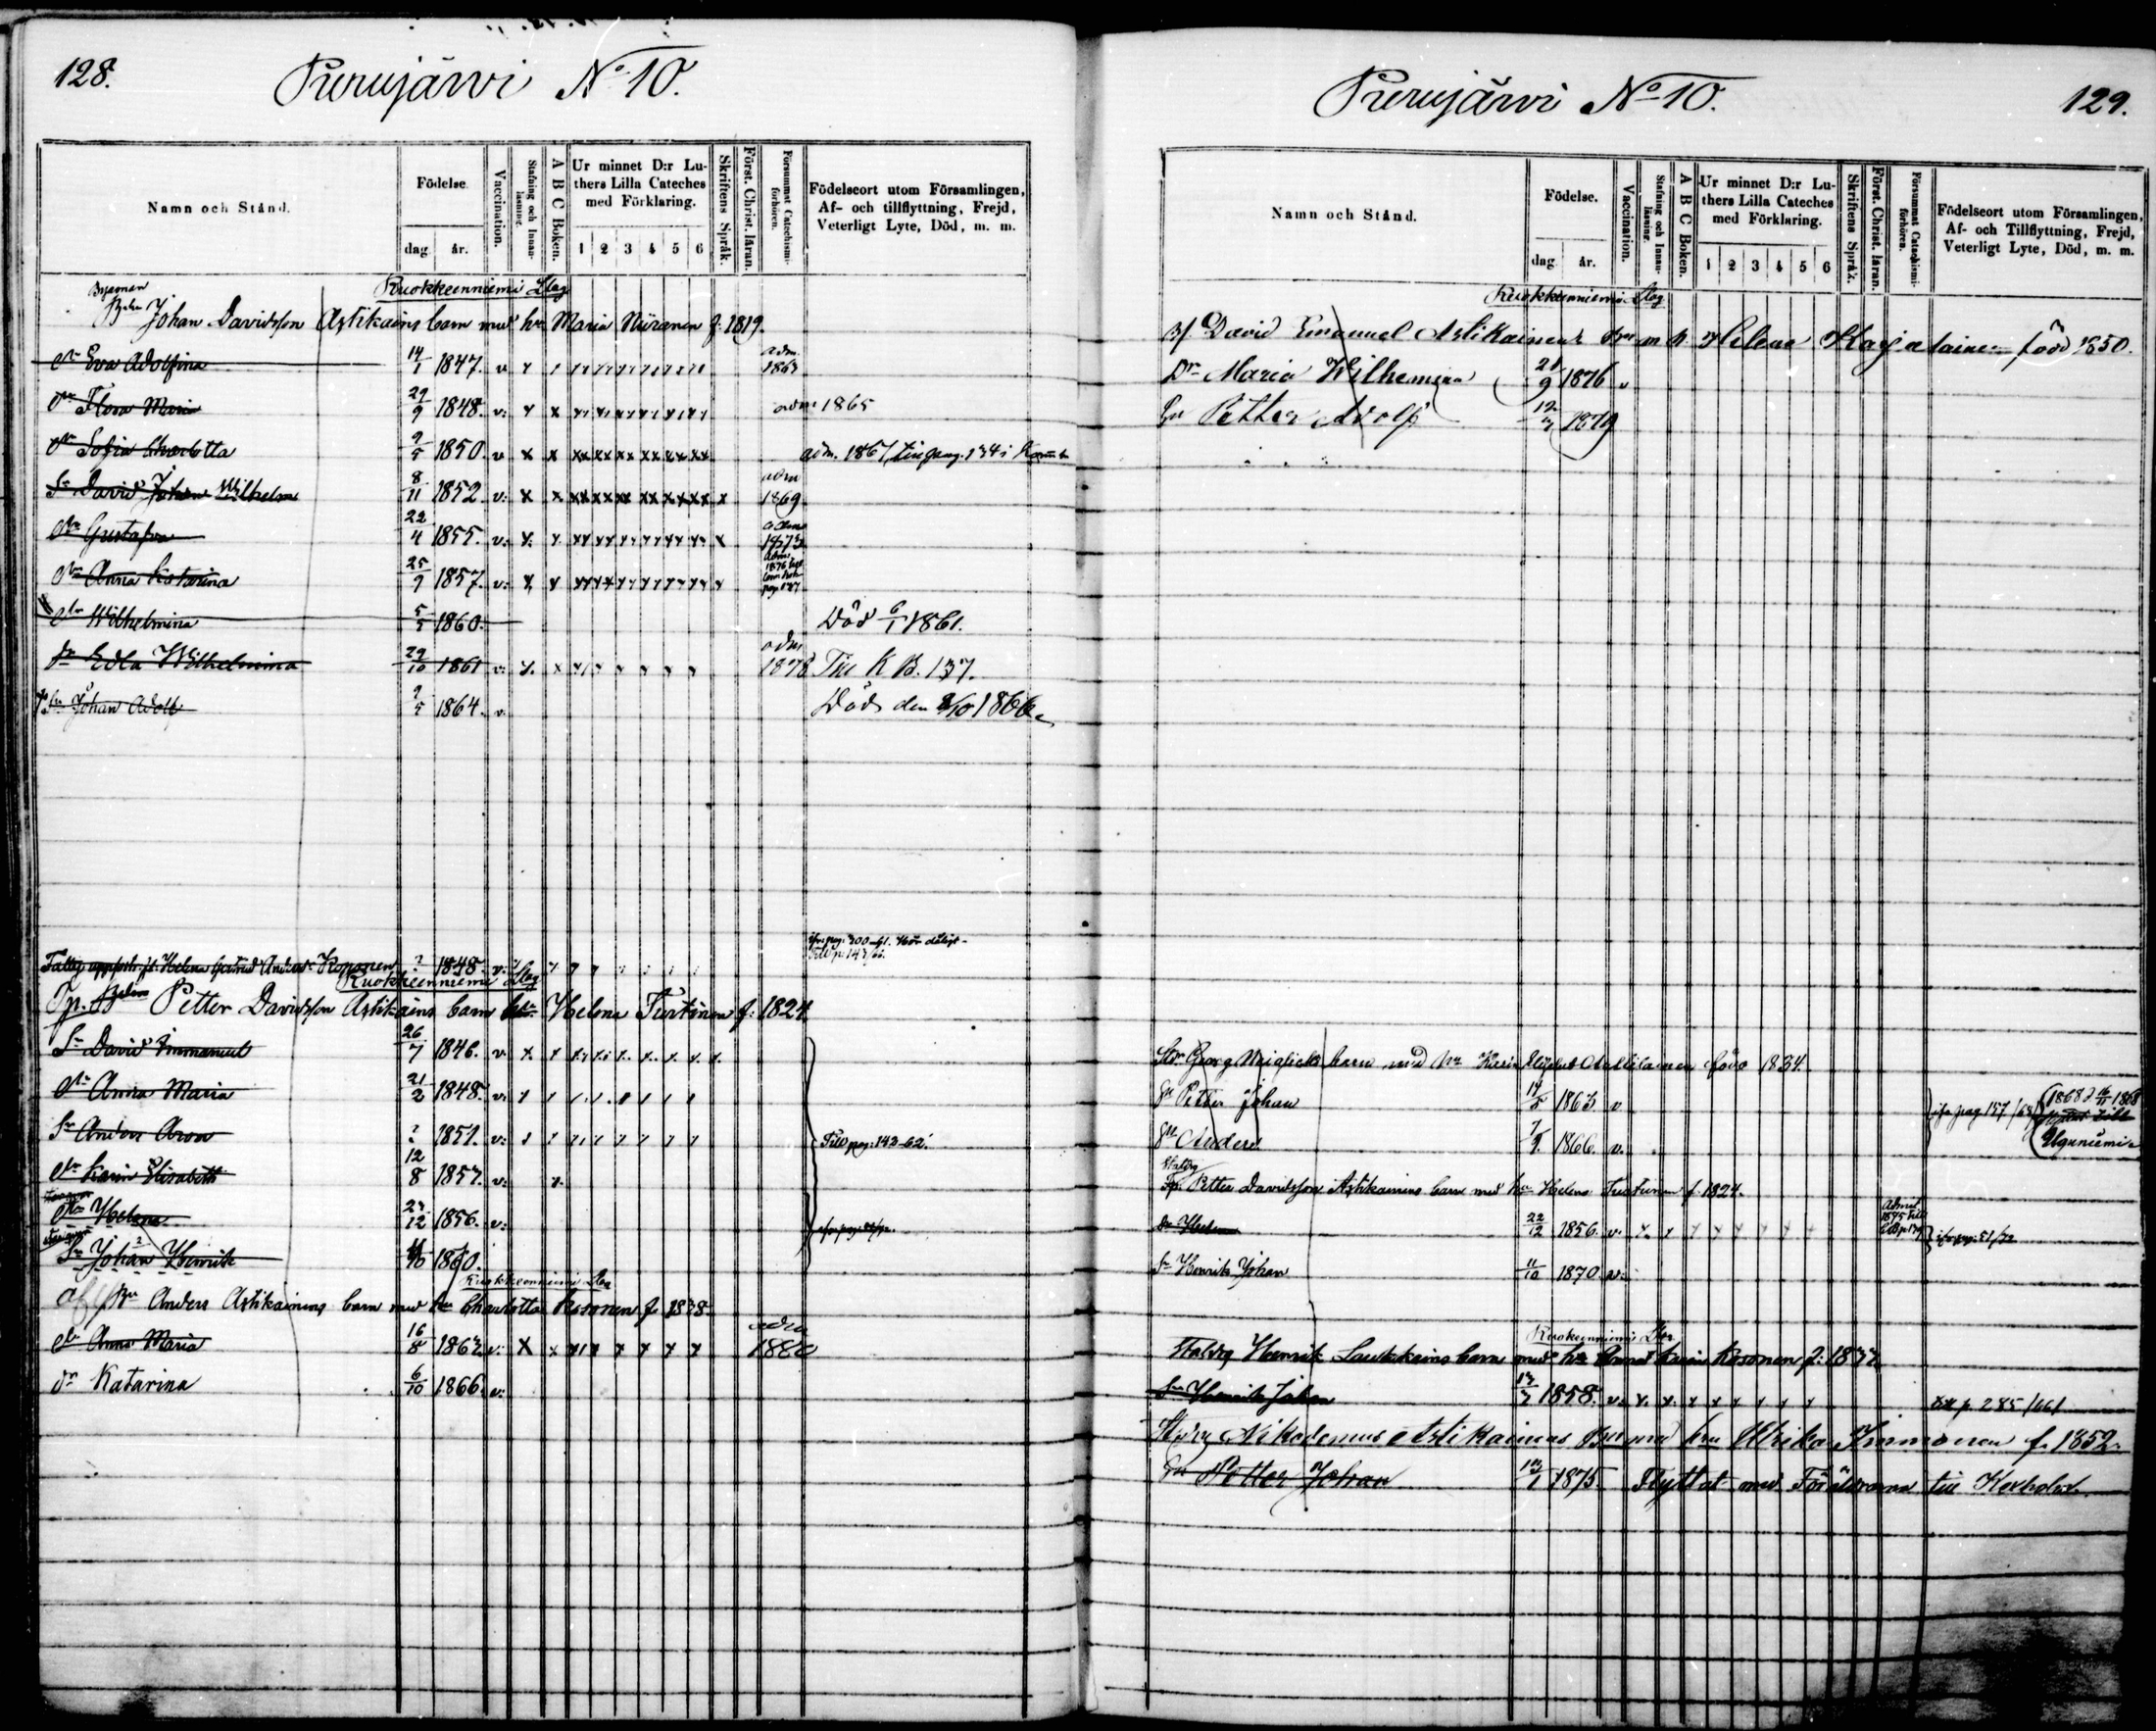 128.
Purujärvi No 10.
Namn och Stånd.
Födelse.
dag. år.
Vaccination.
Stafning och Innanläsning.
A B C Boken.
Ur minnet D:r Luthers Lilla Cateches med Förklaring.
1 2 3 4 5 6
Skriftens Språk.
Först. Christ. läran.
Försummat Catechismiförhören.
Födelseort utom Församlingen, Af- och tillflyttning, Frejd, Veterligt Lyte, Död, m. m.
Ruokkeenniemi Läg
Johan Davidsson Astikains barn med hu Maria Niiranen f. 1819.
Dr Eva Adolfina 14/1 1847. v adm. 1863
Dr Flora Maria 29/9 1848. v. adm 1865
Dr Sofia Charlotta 2/5 1850. v adm. 1867
Sn David Johan Wilhelm 8/11 1852 v. adm 1869.
Dr Gustafva 22/4 1855. v. adm
Dr Anna Katarina 25/9 1857. v. adm. 1876
Dr Wilhelmina 5/5 1860. Död 6/1 1861.
Dr Edla Wilhelmina 29/10 1861 v. adm 1878 Till K B. 137.
Sn Johan Adolf 2/5 1864. v. Död den 2/10 1866.
Helena Gertrud Anders Koponen ? 1848. v.
Ruokkeenniemi Läg
Tp. Petter Davidsson Astikains barn Helena Turtinen f. 1824.
Sn David Immanuel 26/7 1846. v.
Dr Anna Maria 21/2 1848. v.
Sn Anders Aron ? 1851. v. Till pag: 143-62.
Dr Karin Elisabeth 12/8 1857. v.
Dr Helena 22/12 1856. v.
Sn Johan Henrik 11/10 1860.
Ruokkeenniemi Läg
Anders Astikainens barn med hu Charlotta Kosonen f. 1838.
Dr Anna Maria 16/8 1863 v. adm 1880
Dr Katarina 6/10 1866. v.
Purujärvi No 10.
129.
Namn och Stånd.
Födelse.
dag. år.
Vaccination.
Stafning och Innanläsning.
A B C Boken.
Ur minnet D:r Luthers Lilla Cateches med Förklaring.
1 2 3 4 5 6
Skriftens Språk.
Först. Christ. läran.
Försummat Catechismiförhören.
Födelseort utom Församlingen, Af- och Tillflyttning, Frejd, Veterligt Lyte, Död, m. m.
Ruokkeenniemi Läg
David Emanuel Astikainens Brn m h Helena Hajatainen född 1850.
Dr Maria Wilhemina 21/9 1876 v
Sn Petter Adolf 12/3 1879
Georg barn med hu född 1834
Sn Petter Johan 14/5 1863 v
Sn Anders 7/9 1866. v.
Uguniemi
Petter Davidsson Astikainens barn med hu Helena Turtinen f. 1824.
Dr Helena 22/12 1856. v.
Sn Henrik Johan 11/10 1870. v.
Ruokeenniemi Läg
Henrik Laukkains barn med hu Anna Karin Kosonen f: 1832
Sn Henrik Johan 13/3 1858. v. p. 285/661
Nikodemus Astikainens Brn med hu Ulrika Immonen f. 1852.
Sn Petter Johan 13/1 1875. Flyttat med Föräldrarna till Kexholm